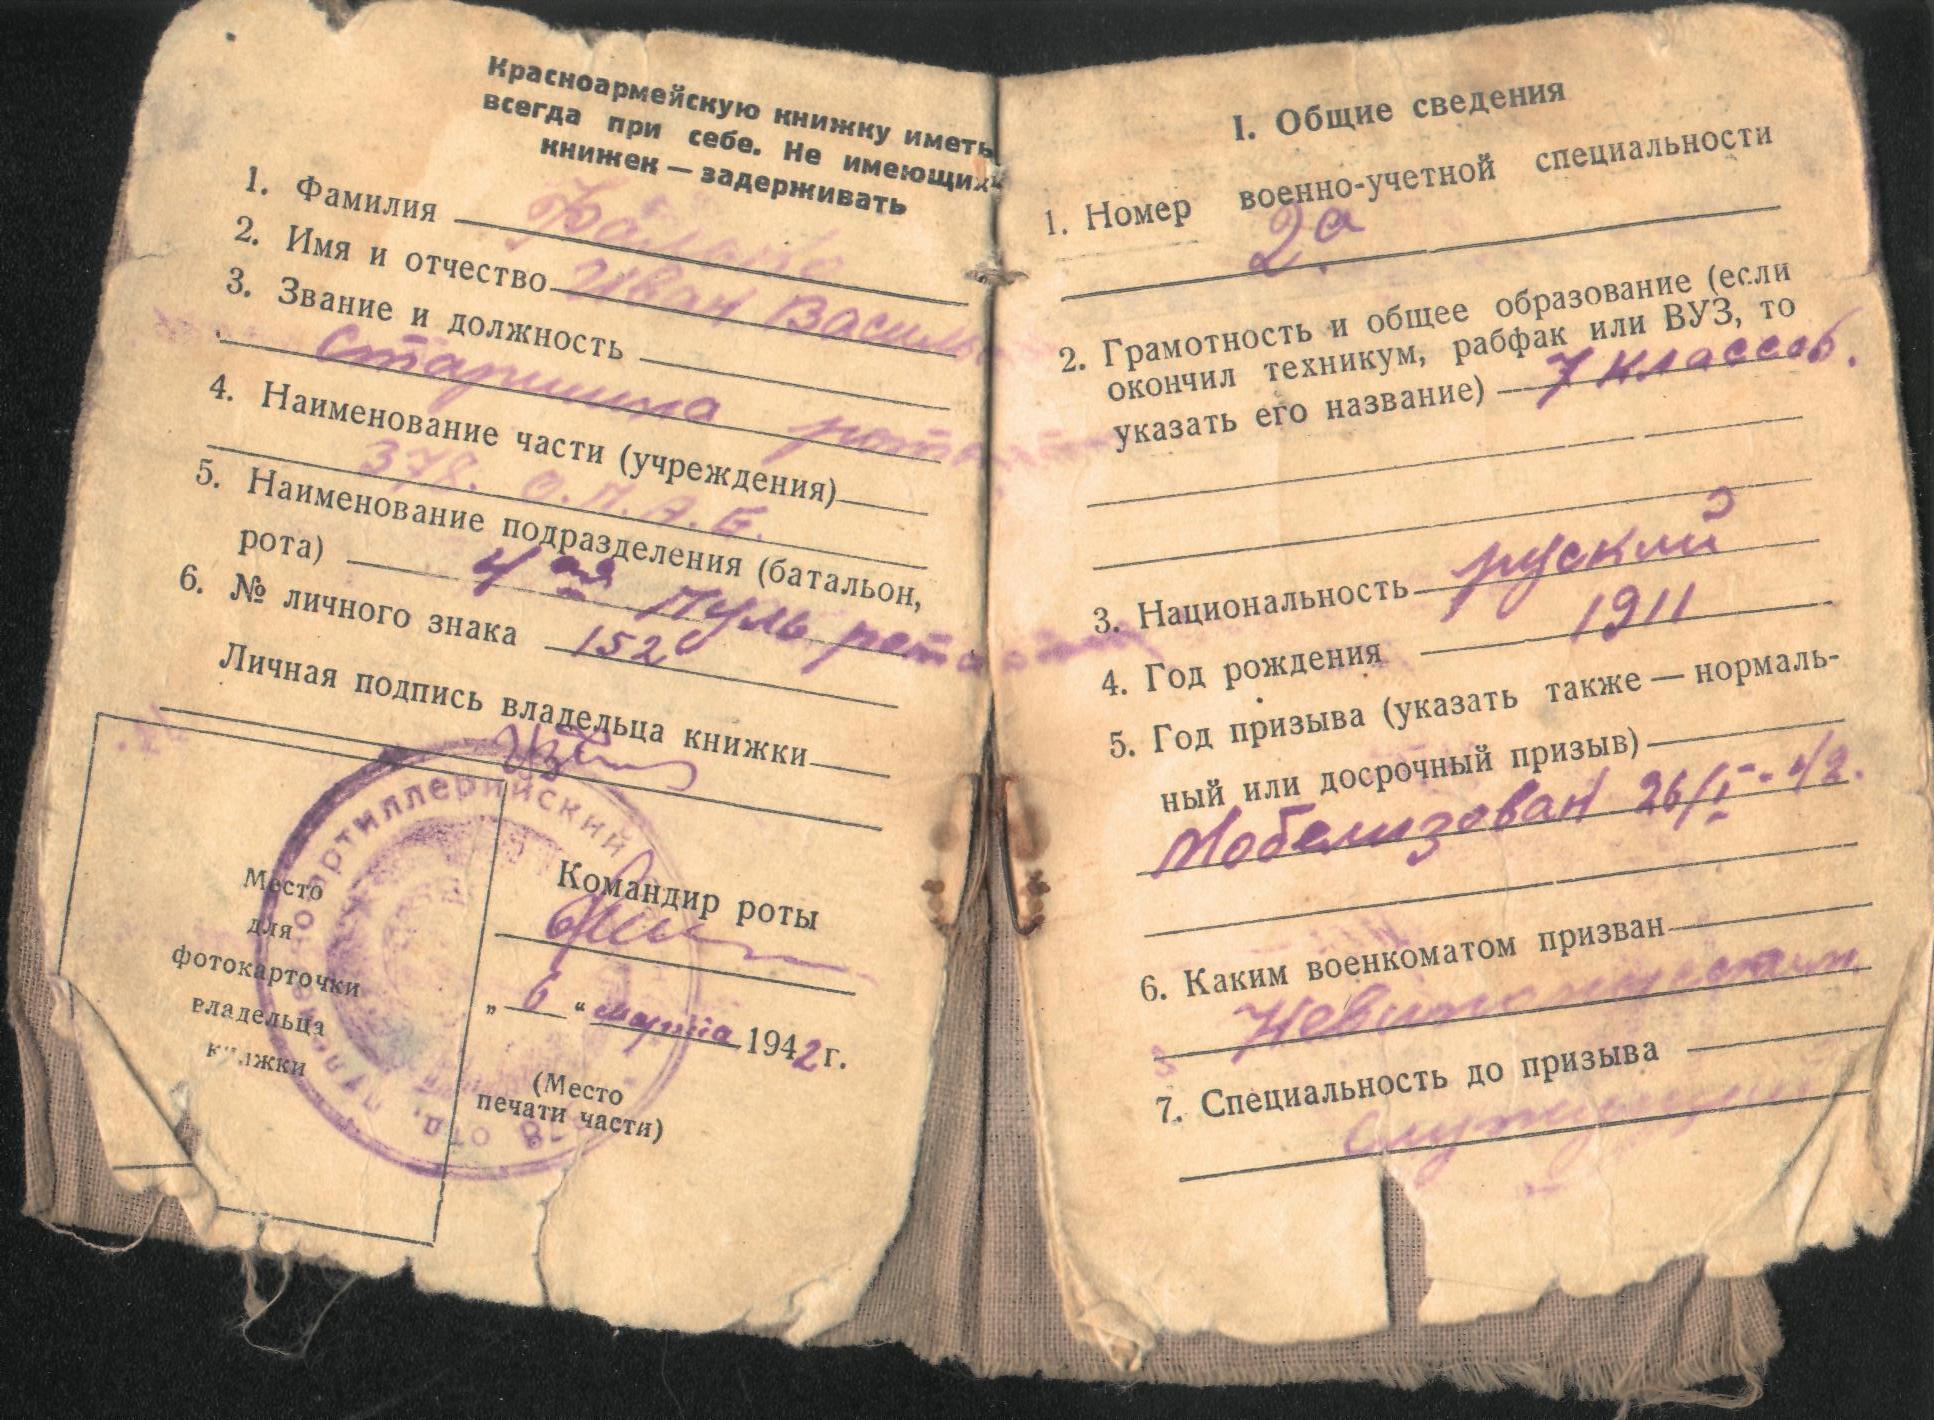 Красноармейскую книжку иметь
всегда при себе. Не имеющих
книжек — задерживать
1. Фамилия
2. Имя и отчество Иван Василь
3. Звание и должность
старшина
4. Наименование части (учреждения)
378. О.П.А.Б.
5. Наименование подразделения (батальон,
рота) 4ая Пуль рота
6. № личного знака 152
Личная подпись владельца книжки
Место
для
фотокарточки
владельца
книжки
Командир роты
„ 6 “ марта 1942 г.
(Место
печати части)
артиллерийский
I. Общие сведения
1. Номер военно-учетной специальности
2а
2. Грамотность и общее образование (если
окончил техникум, рабфак или ВУЗ, то
указать его название) 7 классов.
3. Национальность руский
4. Год рождения 1911
5. Год призыва (указать также — нормаль-
ный или досрочный призыв)
Мобелизован 26/I - 42.
6. Каким военкоматом призван
7. Специальность до призыва
служущий